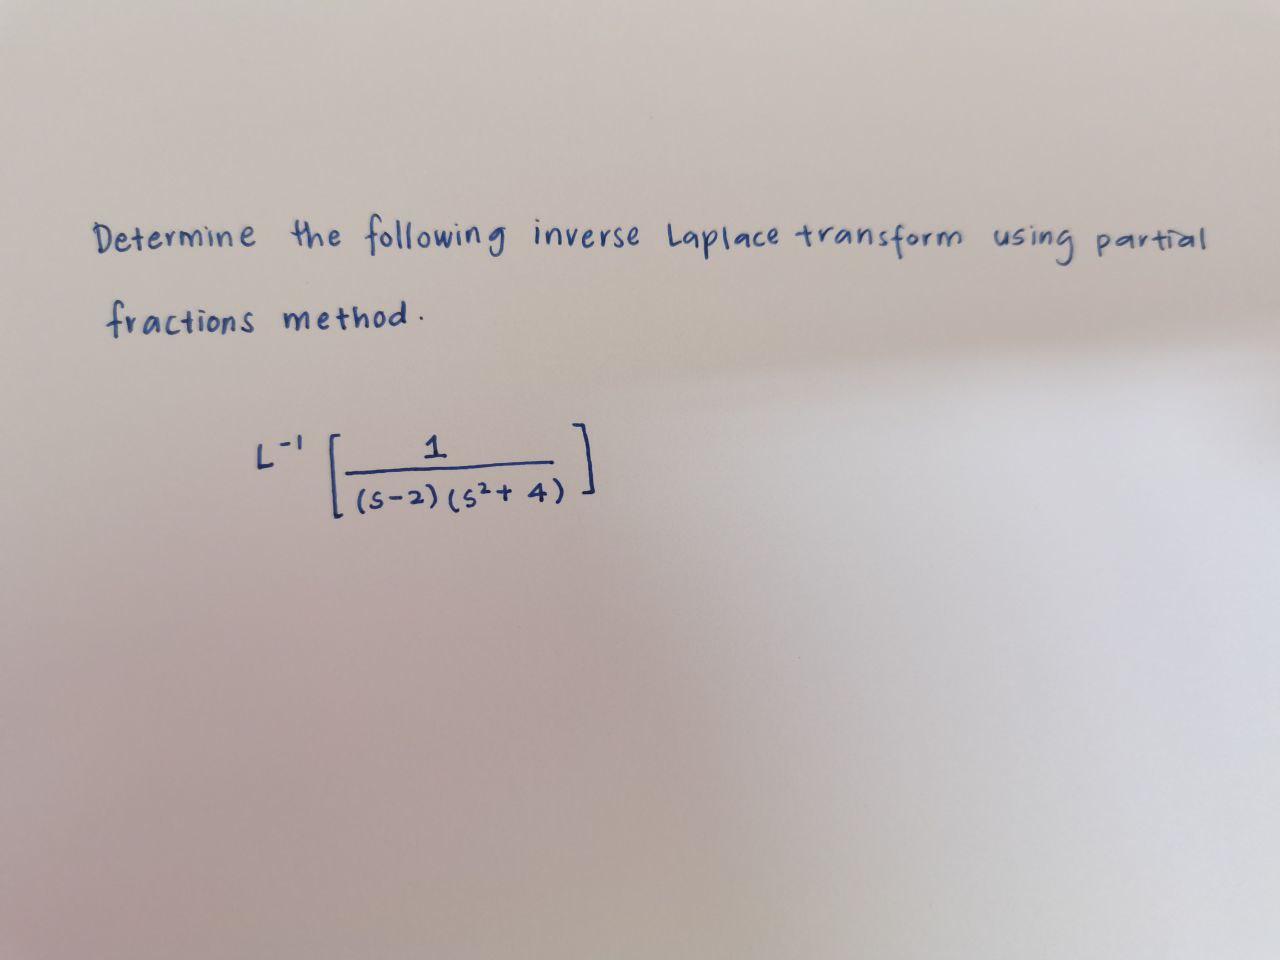 Determine the following inverse Laplace transform using partial
fractions method.
L⁻¹ [ 1 / (s-2)(s²+ 4) ]